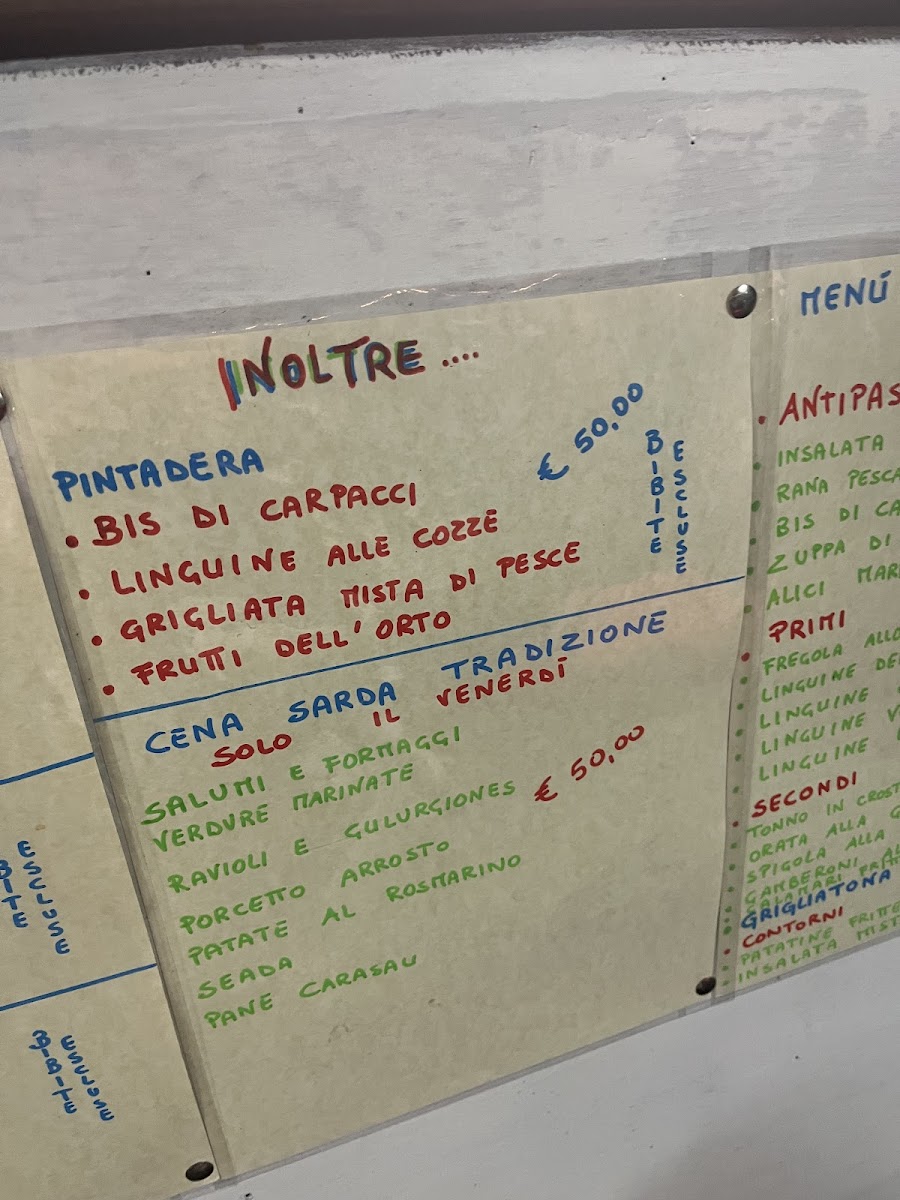 INOLTRE ....
PINTADERA
€ 50,00
BIBITE
ESCLUSE
• BIS DI CARPACCI
• LINGUINE ALLE COZZE
• GRIGLIATA MISTA DI PESCE
• FRUTTI DELL'ORTO
CENA SARDA TRADIZIONE
SOLO IL VENERDÍ
SALUMI E FORMAGGI
VERDURE MARINATE
€ 50,00
RAVIOLI E GULURGIONES
PORCETTO ARROSTO
PATATE AL ROSMARINO
SEADA
PANE CARASAU
BIBITE
ESCLUSE
BIBITE
ESCLUSE
MENÚ
• ANTIPAS
• INSALATA
• RANA PESCA
• BIS DI CA
• ZUPPA DI
• ALICI MAR
• PRIMI
• FREGOLA ALLO
• LINGUINE DE
• LINGUINE
• LINGUINE V
• LINGUINE
• SECONDI
• TONNO IN CROST
• ORATA ALLA G
• SPIGOLA ALLA
• GAMBERONI AL
• CALAMARI FRIT
• GRIGLIATONA
• CONTORNI
• PATATINE FRITTE
• INSALATA MIST